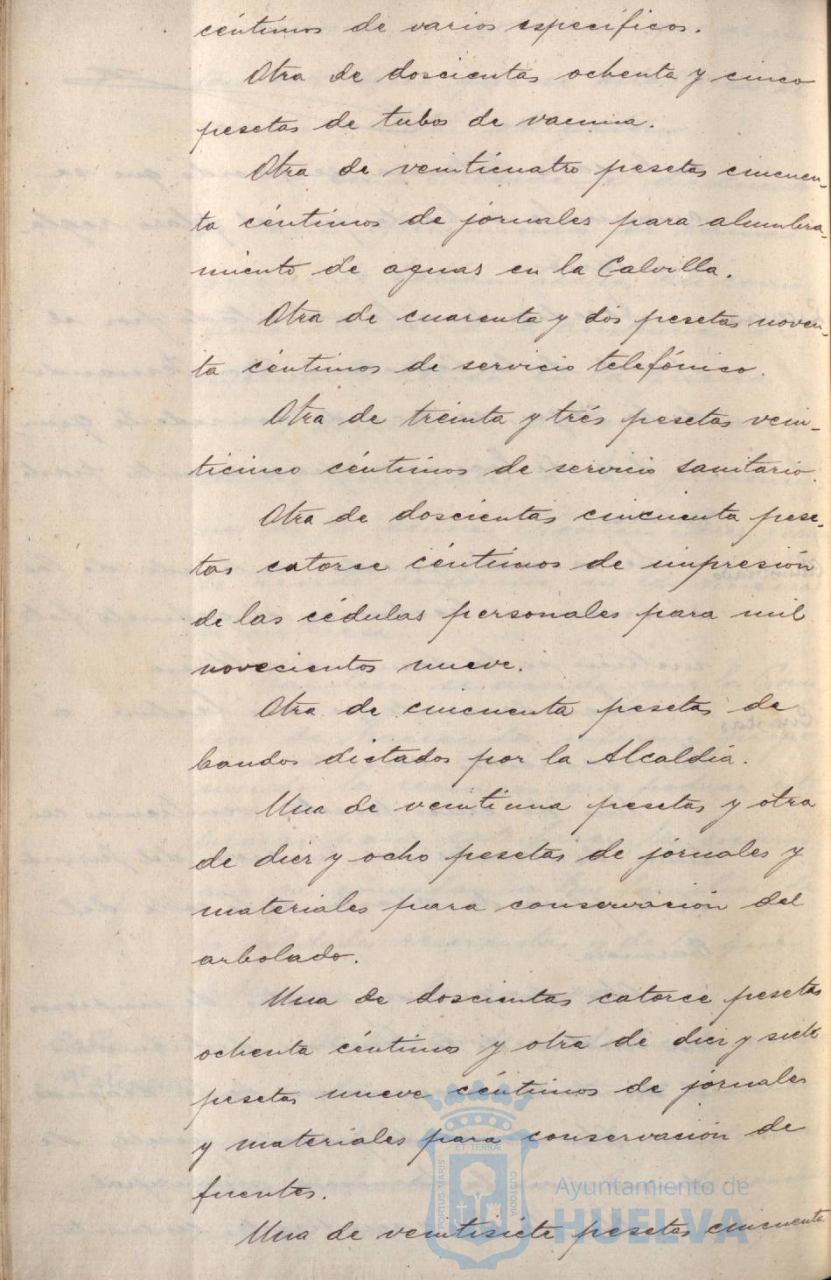 céntimos de varios específicos.
Otra de doscientas ochenta y cinco
pesetas de tubos de vacuna.
Otra de veinticuatro pesetas cincuen-
ta céntimos de jornales para alumbra-
miento de aguas en la Calvilla.
Otra de cuarenta y dos pesetas noven-
ta céntimos de servicio telefónico.
Otra de treinta y trés pesetas vein-
ticinco céntimos de servicio sanitario.
Otra de doscientas cincuenta pese-
tas catorce céntimos de impresión
de las cédulas personales para mil
novecientos nueve.
Otra de cincuenta pesetas de
bandos dictados por la Alcaldía.
Una de veintiuna pesetas y otra
de diez y ocho pesetas de jornales y
materiales para conservación del
arbolado.
Una de doscientas catorce pesetas
ochenta céntimos y otra de diez y siete
pesetas nueve céntimos de jornales
y materiales para conservación de
fuentes.
Una de veintisiete pesetas cincuenta
PORTUS MARIS ET TERRAE CUSTODIA
Ayuntamiento de
HUELVA